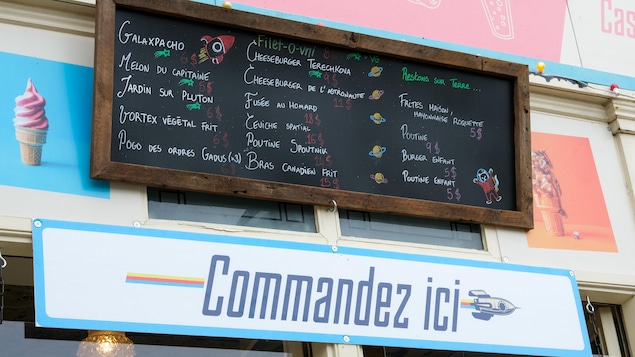 Galaxpacho
Melon du Capitaine
5$
Jardin sur Pluton
5$
Vortex végétal frit
5$
Pogo des ordres Gadus (x3)
15$
Filet-o-vni
Cheeseburger Terechkova
9$
Cheeseburger de l'astronaute
Fusée au Homard
Ceviche spatial
Poutine Spoutnik
Bras canadien frit
15$
Restons sur Terre...
Frites maison,
mayonnaise roquette
5$
Poutine
9$
Burger enfant
5$
Poutine enfant
5$
Cas
Commandez ici